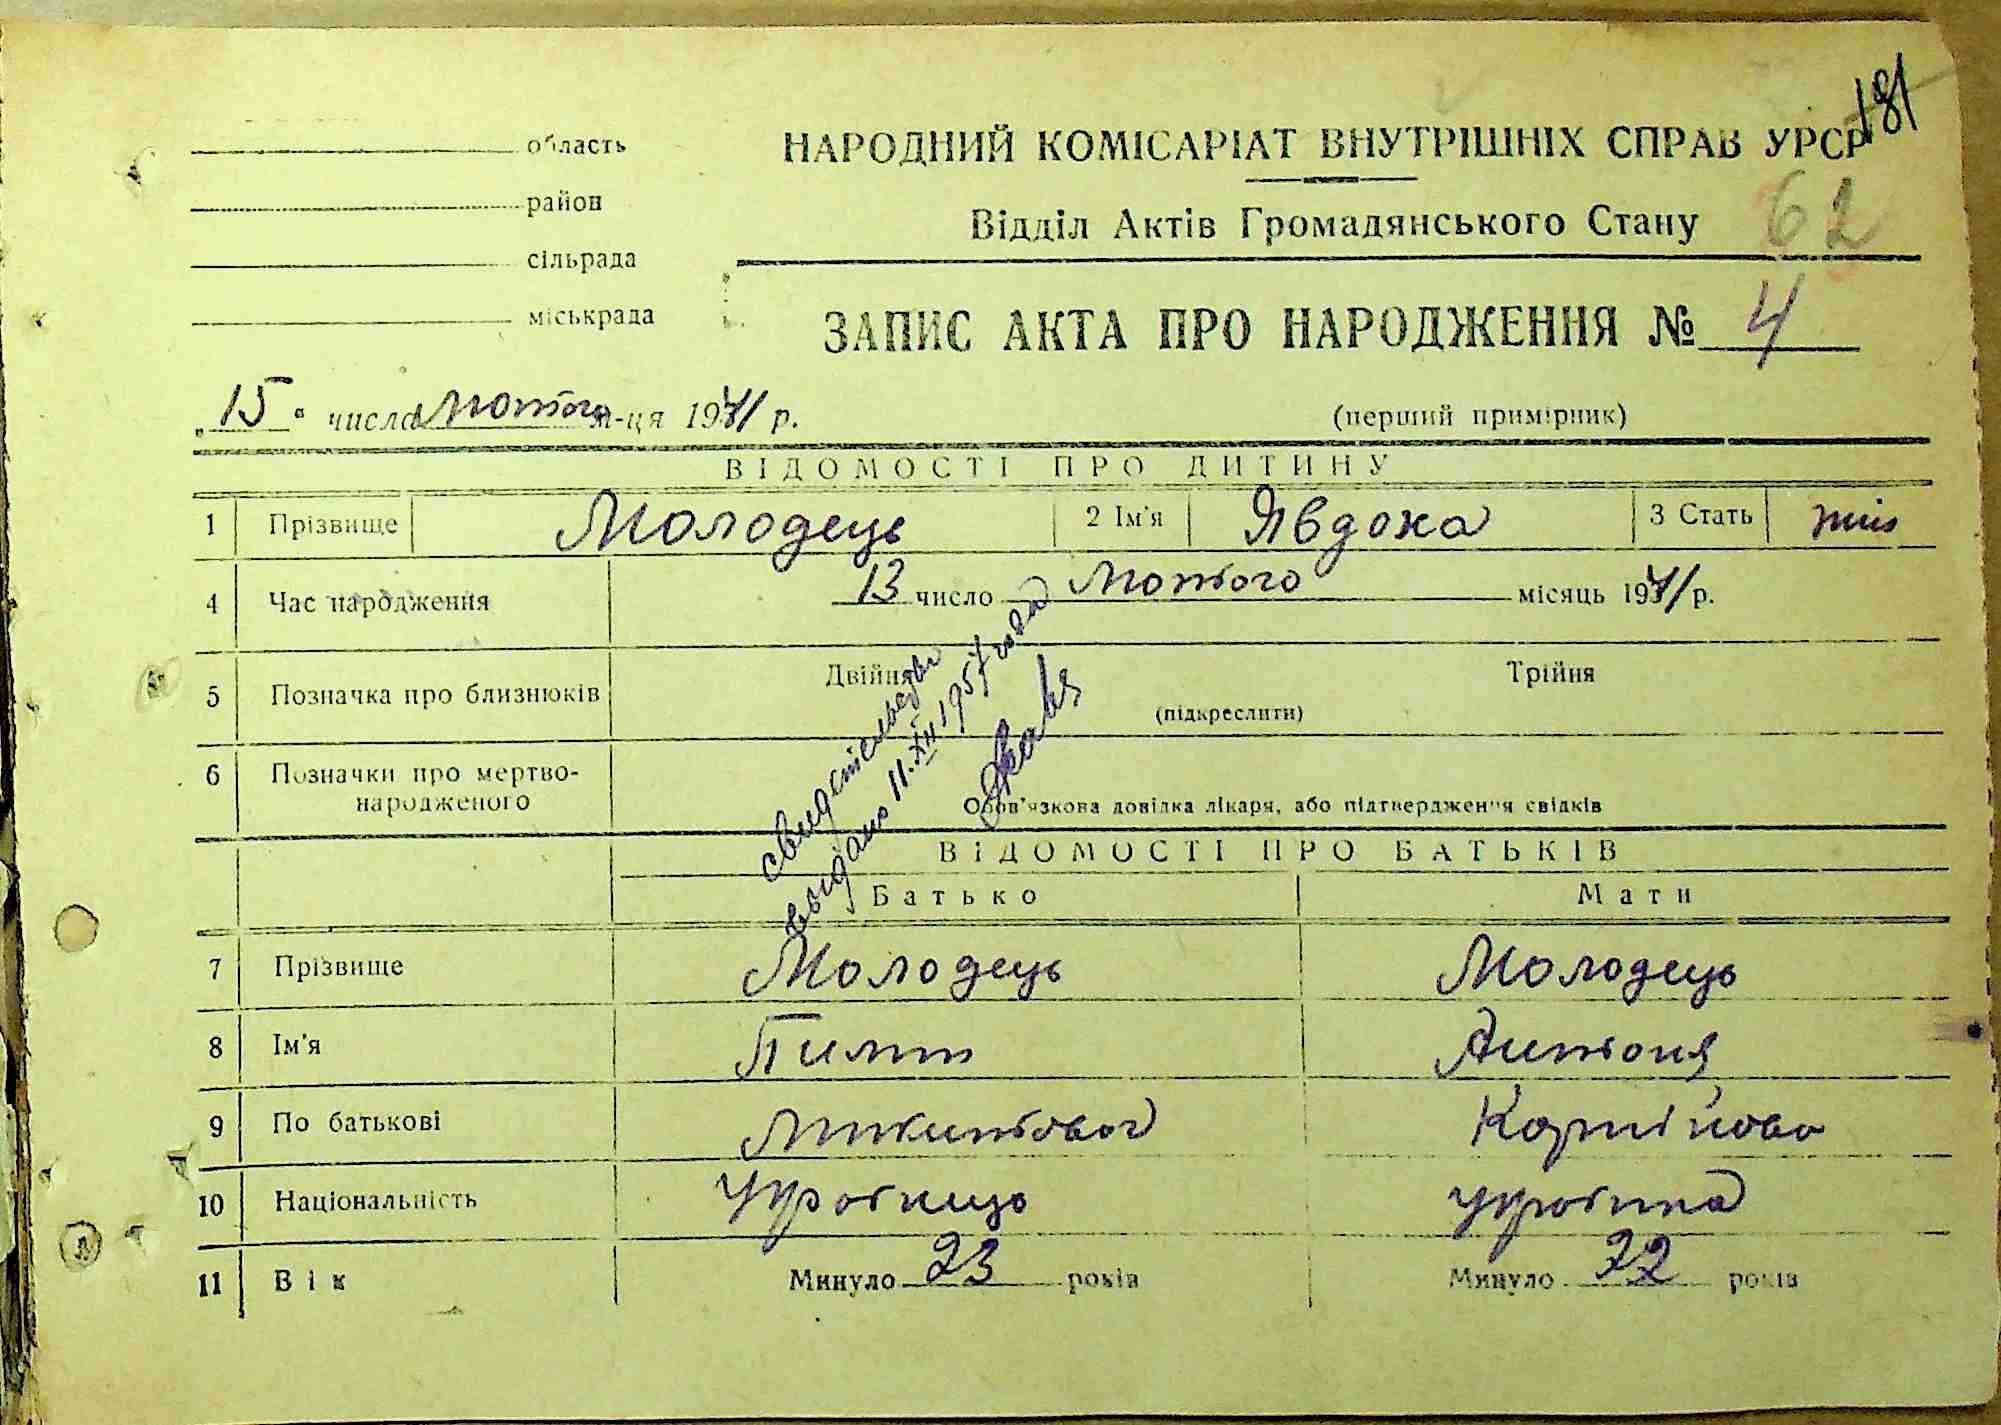 181
область
НАРОДНИЙ КОМІСАРІАТ ВНУТРІШНІХ СПРАВ УРСР
район
Відділ Актів Громадянського Стану 62
сільрада
міськрада
ЗАПИС АКТА ПРО НАРОДЖЕННЯ № 4
„15" числа лютого м-ця 1941 р.
(перший примірник)
ВІДОМОСТІ ПРО ДИТИНУ
1 Прізвище Молодець 2 Ім'я Явдоха 3 Стать жін
4 Час народження 13 число лютого місяць 1941 р.
5 Позначка про близнюків Двійня Трійня
(підкреслити)
6 Позначки про мертво-
народженого
Обов'язкова довідка лікаря, або підтвердження свідків
свидетельство
выдано 11.XII 1957 года
ВІДОМОСТІ ПРО БАТЬКІВ
Батько Мати
7 Прізвище Молодець Молодець
8 Ім'я Пилип Антоня
9 По батькові Микитович Корнійовна
10 Національність Українець українка
11 Вік Минуло 23 років Минуло 22 років